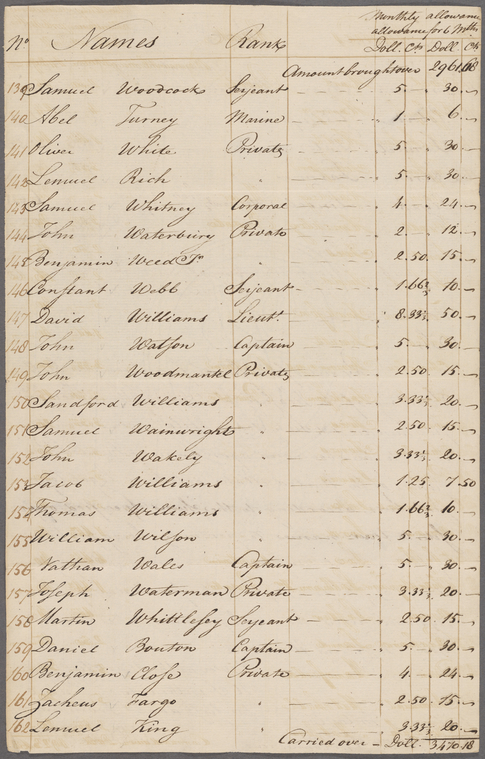 Monthly allowance
allowance for 6 Mths
No Names Rank Doll. Cts Doll Cts
Amount brought over 2961.68
139 Samuel Woodcock Serjeant 5 30
140 Abel Turney Marine 1 6
141 Oliver White Private 5 30
142 Lemuel Rich " 5 30
143 Samuel Whitney Corporal 4 24
144 John Waterbury Private 2 12
145 Benjamin Weed Jr " 2.50 15
146 Constant Webb Serjeant 1.66⅔ 10
147 David Williams Lieut. 8.33⅓ 50
148 John Watson Captain 5 30
149 John Woodmankel Private 2.50 15
150 Sandford Williams " 3.33⅓ 20
151 Samuel Wainwright " 2.50 15
152 John Wakely " 3.33⅓ 20
153 Jacob Williams " 1.25 7.50
154 Thomas Williams " 1.66⅔ 10
155 William Wilson " 5 30
156 Nathan Wales Captain 5 30
157 Joseph Waterman Private 3.33⅓ 20
158 Martin Whittlesey Serjeant 2.50 15
159 Daniel Bouton Captain 5 30
160 Benjamin Close Private 4 24
161 Zacheus Fargo " 2.50 15
162 Lemuel King " 3.33⅓ 20
Carried over Doll. 3470.18